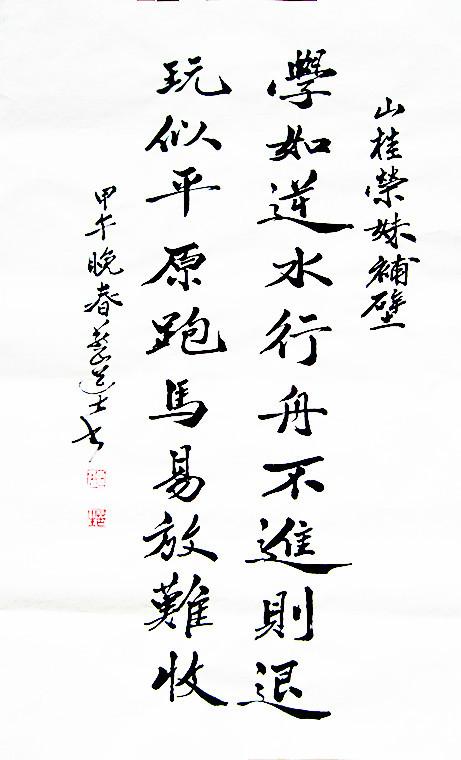 山桂榮妹補壁
學如逆水行舟不進則退
玩似平原跑馬易放難收
甲午晚春道士书